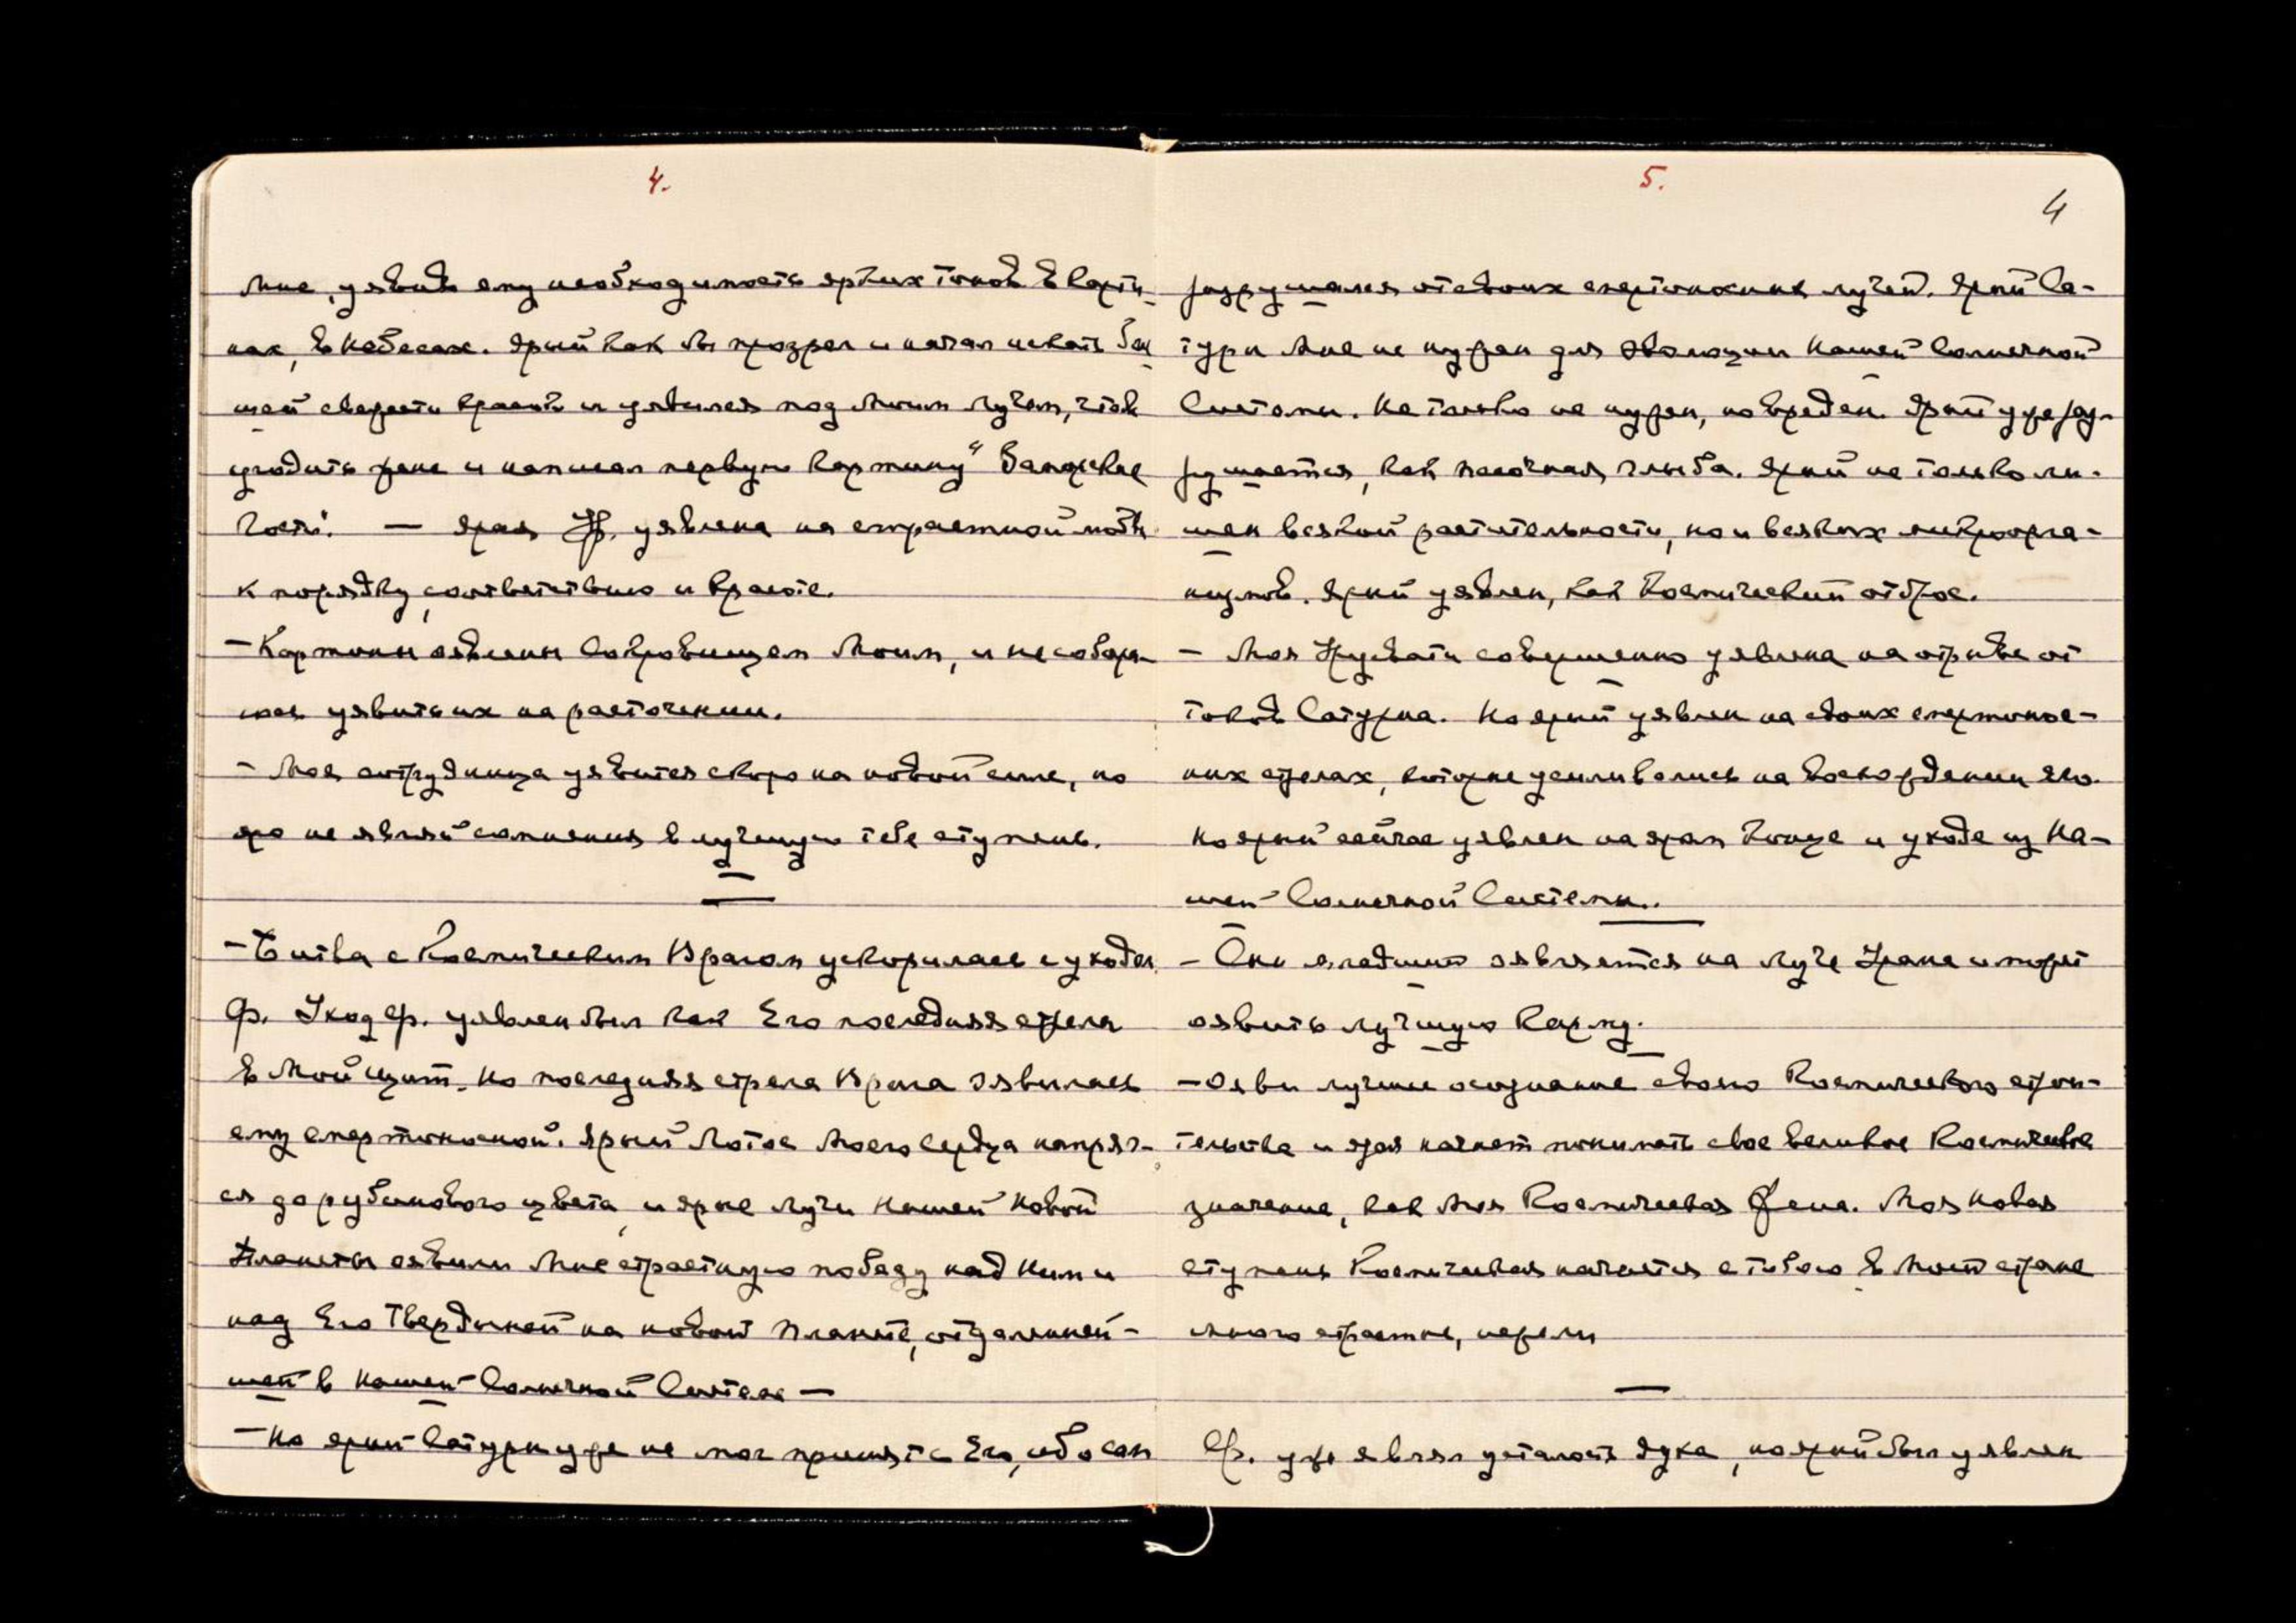 4.
Мне, уявив ему необходимость ярких тонов в карти-
нах, в Небесах. Ярый как бы прозрел и начал искать
шей свежести красок и уявился под Моим Лучом, чтоб
угодить жене и написал первую картину "Бэнджские
Гости". — Ярая уявлена на страстной любви
к порядку, соответствию и красоте.
– Картины оявлены Сокровищем Моим, и не собира-
юсь уявить их на расточении.
– Моя сотрудница уявится скоро на новой силе, но
яро не являй сомнения в лучшую тебе ступень.
– Битва с Космическим Врагом ускорилась с уходом
Ф. Уход Ф. уявлен был как Его последняя стрела
в Мой щит. Но последняя стрела Врага оявилась
ему смертоносной. Ярый Лотос Моего Сердца напряг-
ся до рубинового цвета, и ярые лучи Нашей Новой
Планеты оявили Мне страстную победу над Ним и
над Его Твердыней на новой планете, отдаленней-
шей в Нашей Солнечной Системе —
– Но ярый Сатурн уже не мог принять Его, ибо сам
5.
4
разрушался от своих смертоносных лучей. Ярый Са-
турн Мне не нужен для эволюции Нашей Солнечной
Системы. Не только не нужен, но вреден. Ярый уже раз-
рушается, как песочная глыба. Ярый не только ли-
шен всякой растительности, но и всяких микроорга-
низмов. Ярый уявлен, как Космический отброс.
– Моя Урусвати совершенно уявлена на отрыве от
токов Сатурна. Но ярый уявлен на своих смертонос-
ных стрелах, которые усиливались на восхождении его.
Но ярый сейчас уявлен на яром конце и уходе из На-
шей Солнечной Системы.
– Они младшие оявляются на Луче Урана и могут
оявить лучшую карму.
– Ояви лучшее осознание своего Космического строи-
тельства и ярая начнет понимать свое великое Космическое
значение, как Моя Космическая Жена. Моя новая
ступень Космическая начнется с тобою в Моей стране
много страстнее, нежели
Ф. уже являл усталость духа, но ярый был уявлен